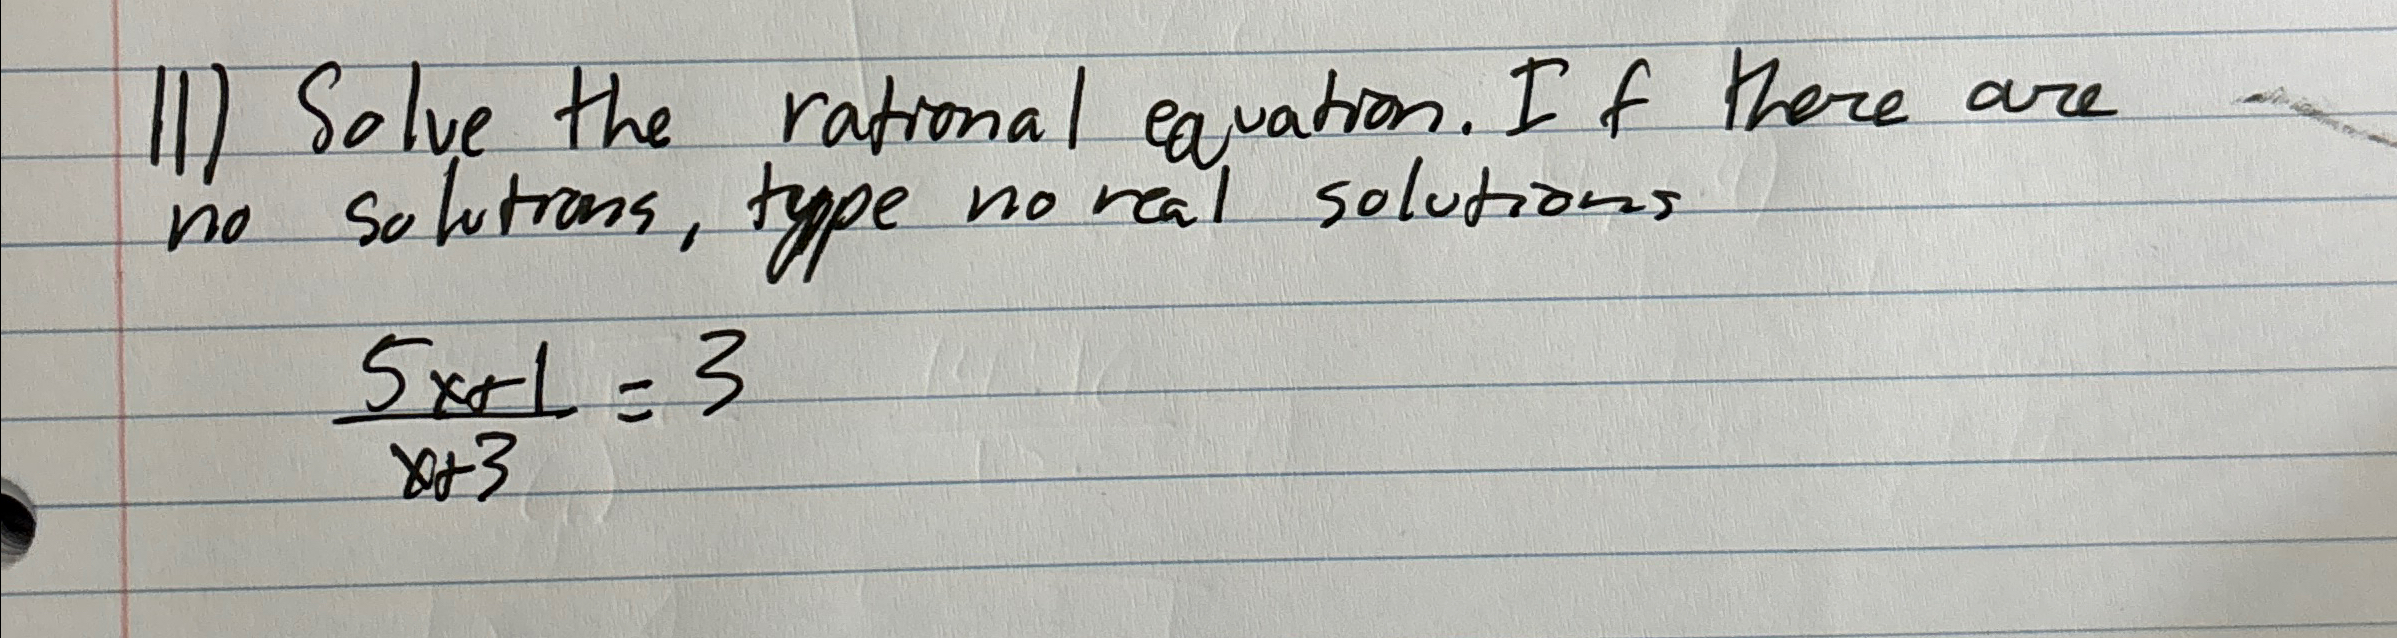 11) Solve the rational equation. If there are
no solutions, type no real solutions
5x+1 = 3
x+3